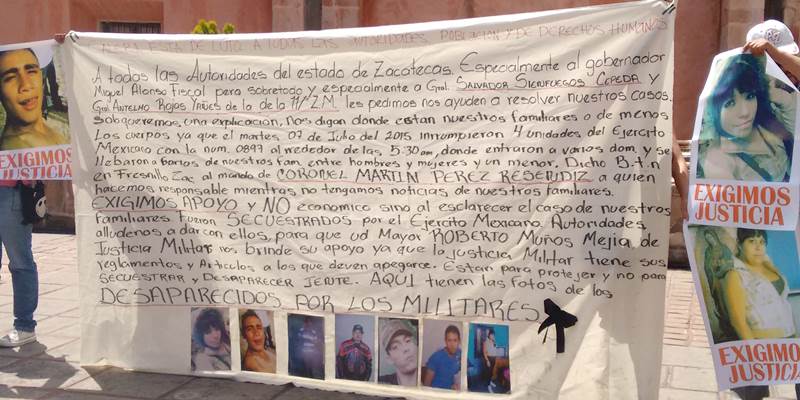 ESTA DE LUTO A TODAS LAS AUTORIDADES POBLACION Y DE DERECHOS HUMANOS
A todas las Autoridades del estado de Zacatecas. Especialmente al gobernador
Miguel Alonso Fiscal pero sobretodo y especialmente a Gral. SALVADOR SIENFUEGOS CEPEDA Y
Gral ANTELMO ROJAS YAÑES de la de la 11/Z.M. les pedimos nos ayuden a resolver nuestros casos.
Solo queremos una explicación, Nos digan donde estan nuestros familiares o de menos
Los cuerpos ya que el martes 07 de Julio del 2015 inrrumpieron 4 unidades del Ejercito
Mexicano con la num. 0897 al rededor de las 5:30 am, donde entraron a varios dom, y se
llebaron a barios de nuestros fam, entre hombres y mujeres y un menor. Dicho B.t.n
en Fresnillo Zac al mando de CORONEL MARTIN PEREZ RESENDIZ a quien
hacemos responsable mientras no tengamos noticias de nuestros familiares.
EXIGIMOS APOYO y NO económico sino al esclarecer el caso de nuestros
familiares Fueron SECUESTRADOS por el Ejercito Mexicano Autoridades
alludenos a dar con ellos, para que ud Mayor ROBERTO MUÑOS MEJIA de
Justicia Militar nos brinde su apoyo ya que la justicia Militar tiene sus
reglamentos y Articulos a los que deven apegarce. Estan para protejer y no para
SECUESTRAR y DESAPARECER JENTE. AQUI tienen las fotos de los
DESAPARECIDOS POR LOS MILITARES
EXIGIMOS
JUSTICIA
EXIGIMOS
JUSTICIA
EXIGIMOS
JUSTICIA